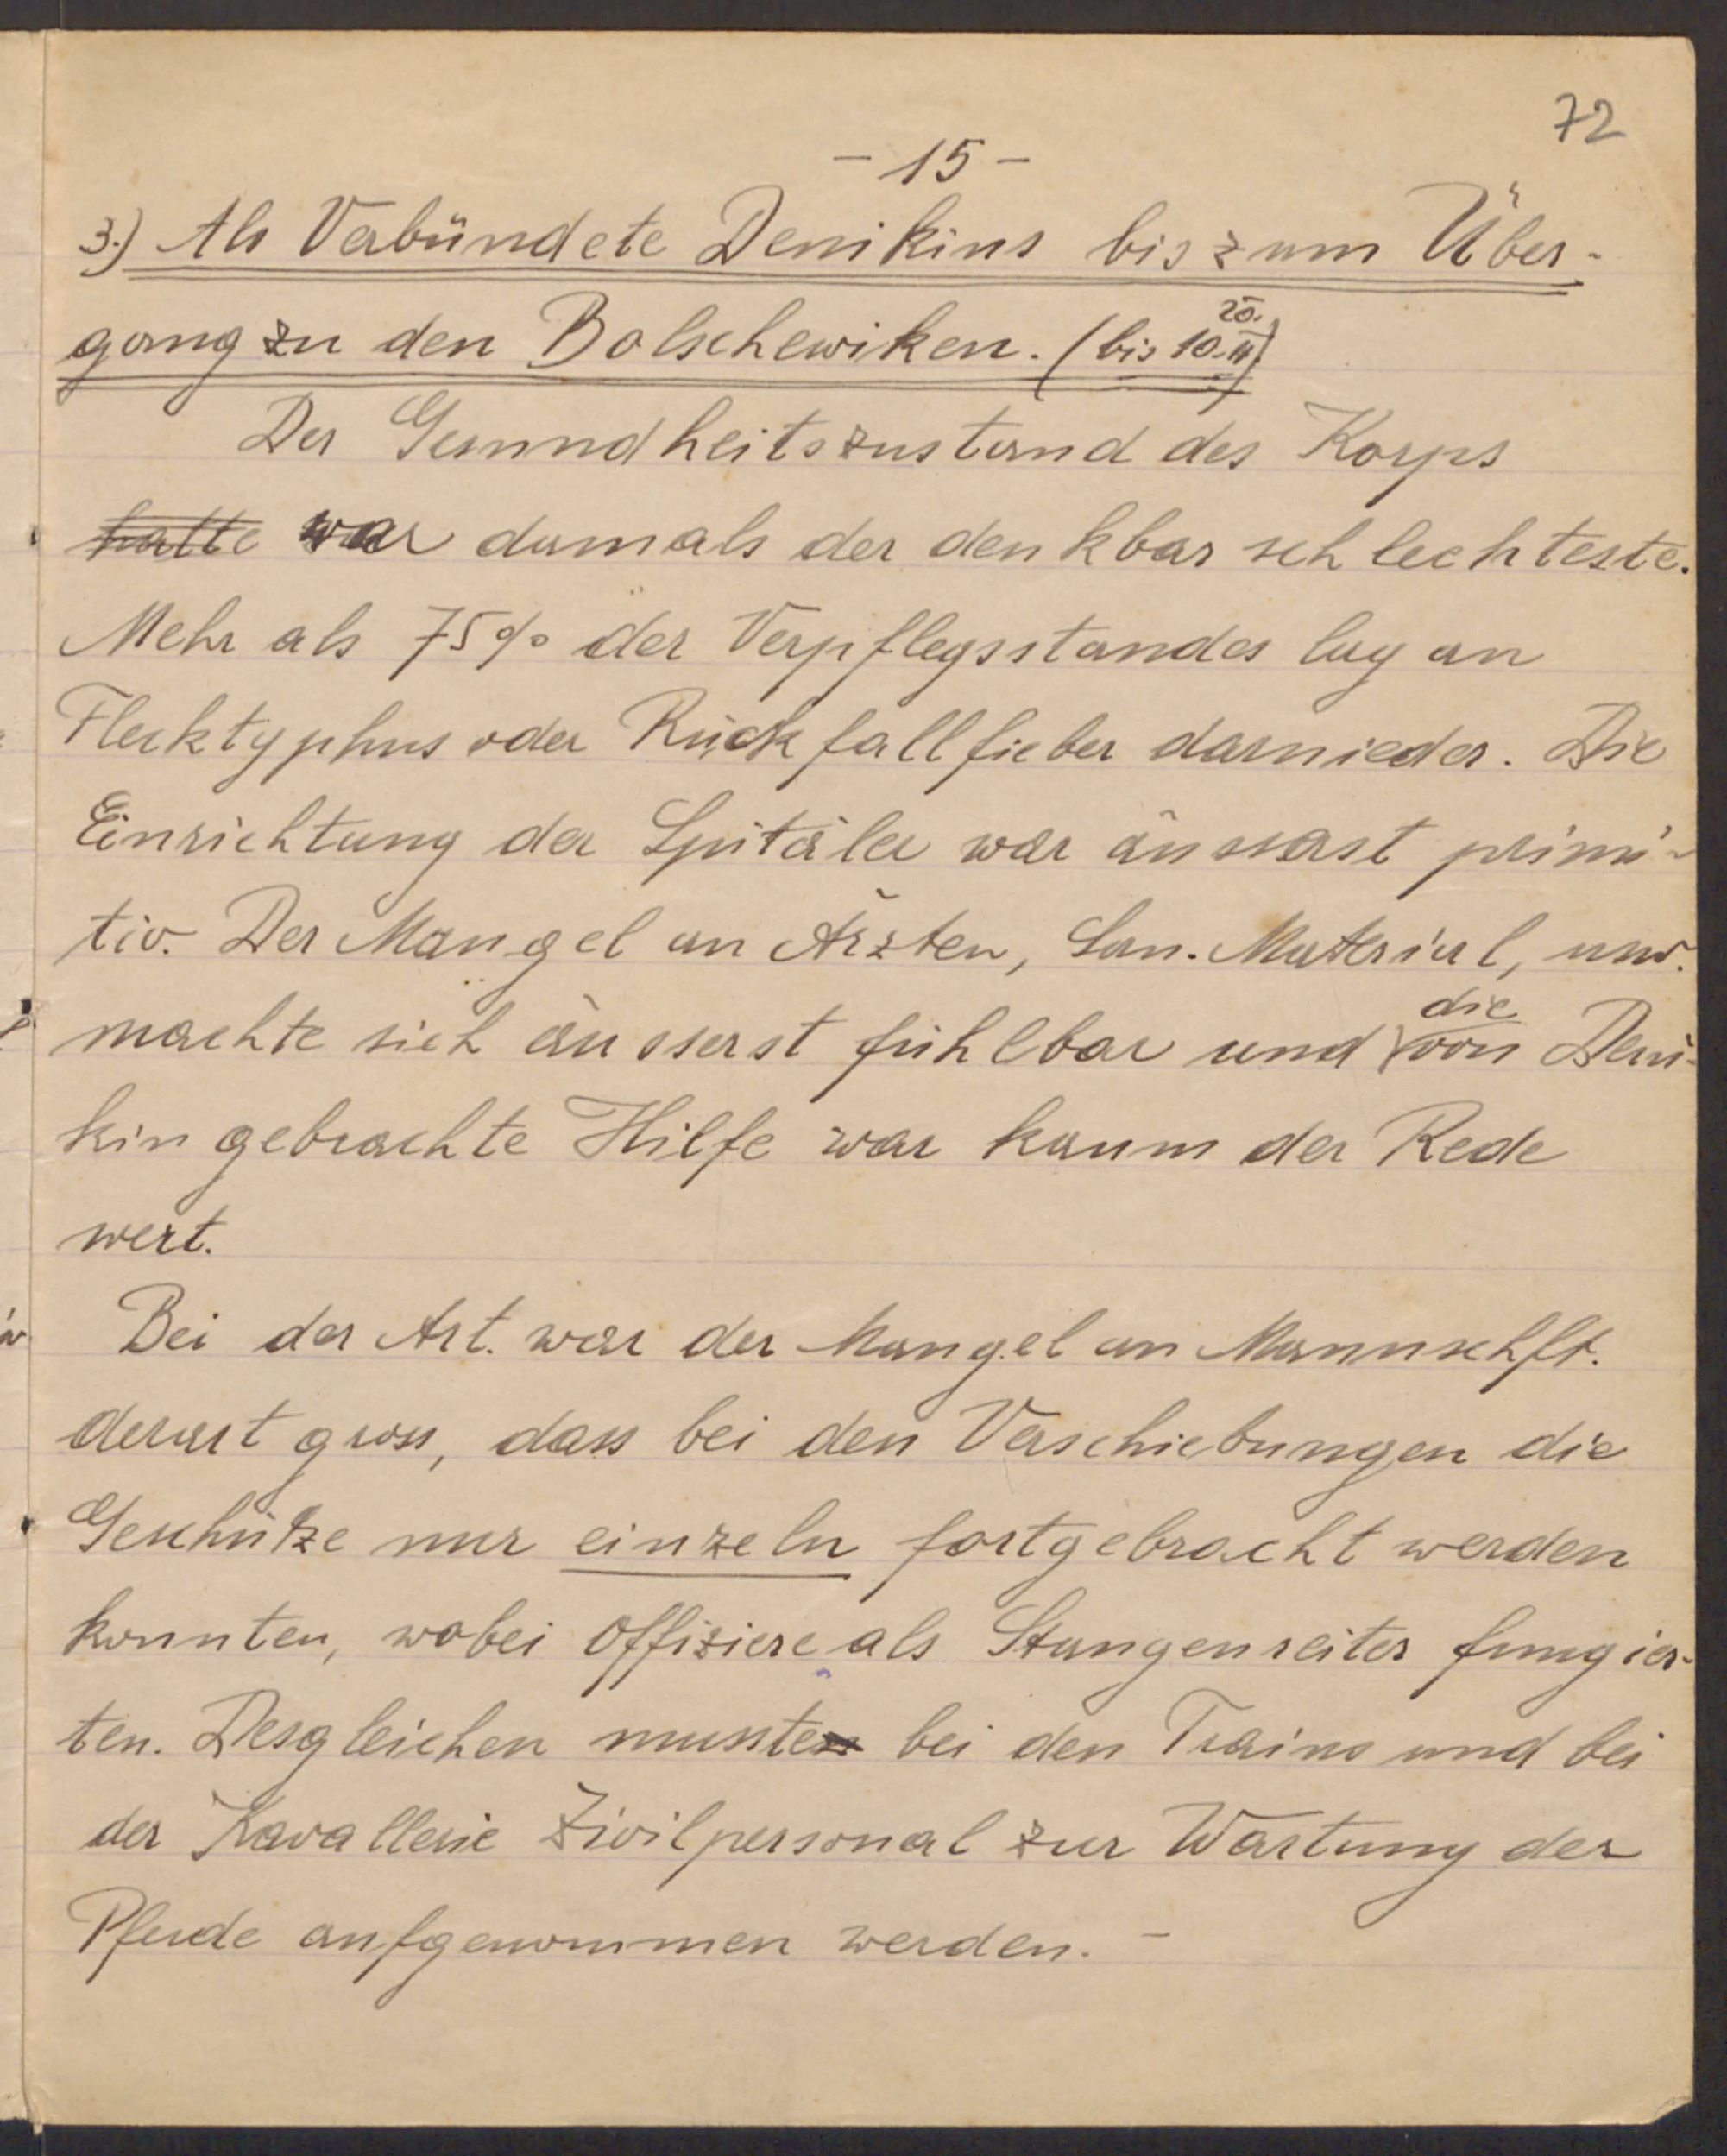 72
- 15 -
3.) Als Verbündete Denikins bis zum Über-
gang zu den Bolschewiken. (bis 10. II 20.)
Der Gesundheitszustand des Korps
~~hatte~~ war damals der denkbar schlechteste.
Mehr als 75% der Verpflegsstandes lag an
Flecktyphus oder Rückfallfieber darnieder. Die
Einrichtung der Spitäler war äusserst primi-
tiv. Der Mangel an Ärzten, San. Material, usw.
machte sich äusserst fühlbar und die von Deni-
kin gebrachte Hilfe war kaum der Rede
wert.
Bei der Art. war der Mangel an Mannschft.
derart gross, dass bei den Verschiebungen die
Geschütze nur einzeln fortgebracht werden
konnten, wobei Offiziere als Stangenreiter fungier-
ten. Desgleichen musste bei den Trains und bei
der Kavallerie Zivilpersonal zur Wartung der
Pferde aufgenommen werden. -